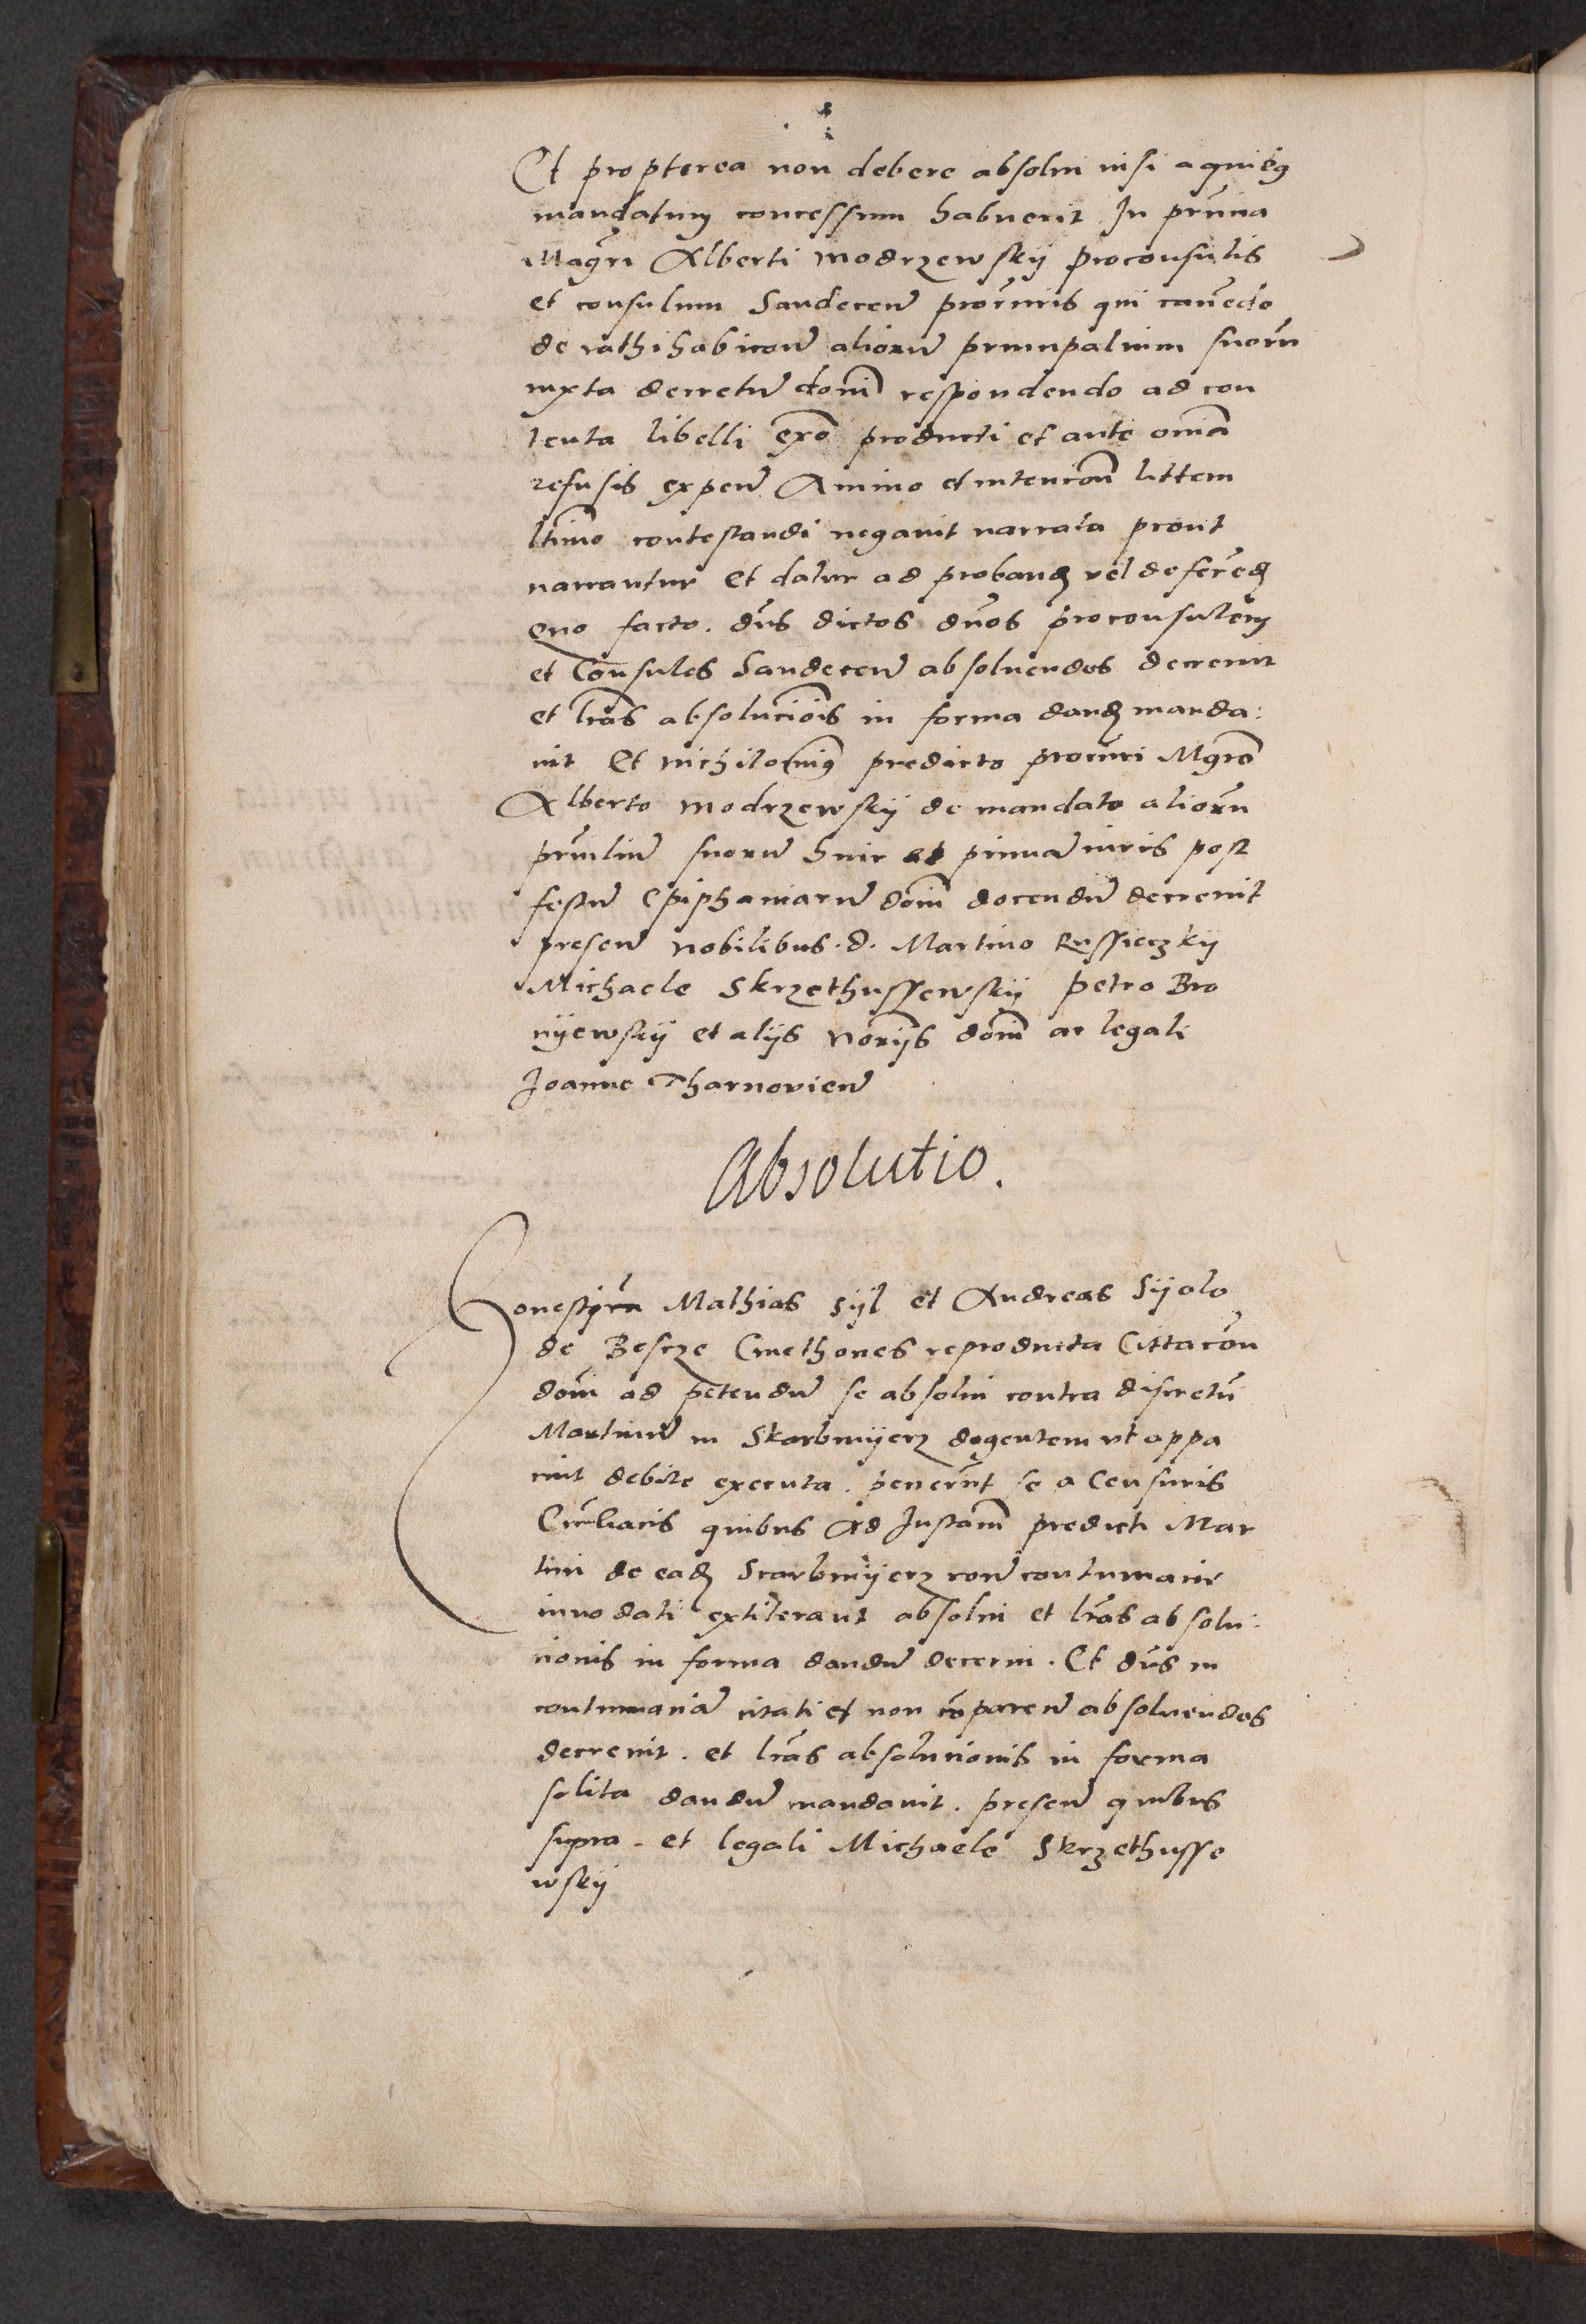 Et propterea non debere absolui nisi a quibus
mandatum concessum habuerit In prima
Magri Alberti Modrzewskij proconsulis
et consulum Sandecen procuris qui cauedo
de rathihabicone aliorum principalium suoru
iuxta decretu domi respondendo ad con
tenta libelli exo producti et ante omia
refusis expen Animo et intencon littem
ltimo contestandi negauit narrata prout
narrantur Et datur ad proband vel defered
Quo facto. dns dictos dnos proconsulem
et Consules Sandecen absoluendos decreuit
et lras absoluciois in forma dand manda:
uit Et nichilominus predicto procuri Mgro
Alberto Modrzewskij de mandato alioru
prinliu suoru huic ad prima iuris post
festu Epiphaniaru domi docendu decreuit
presen Nobilibus. d. Martino Russieczkij
Michaele Skrzethussewskij Petro Bro
nijewskij et alijs Norijs domi ac legali
Joanne Tharnovien
Absolutio.
Honesti Mathias Sijl et Andreas Sijolo
de Besrze Cmethones reproducta Cittacon
domi ad petendu se absolui contra discretu
Martinu in Skarbmijerz degentem vt appa
ruit debite executa. petierut se a Censuris
quibus Ad Instam predicti Mar
tini de ead Scarbmijerz contumacie
innodati extiterant absolui et lras absolu:
cionis in forma dandu decerni. Et dns in
contumacia citati et non coparen absoluendos
decreuit. et lras absolucionis in forma
solita dandu mandauit. presen quibus
supra. et legali Michaele Skrzethusse
wskij